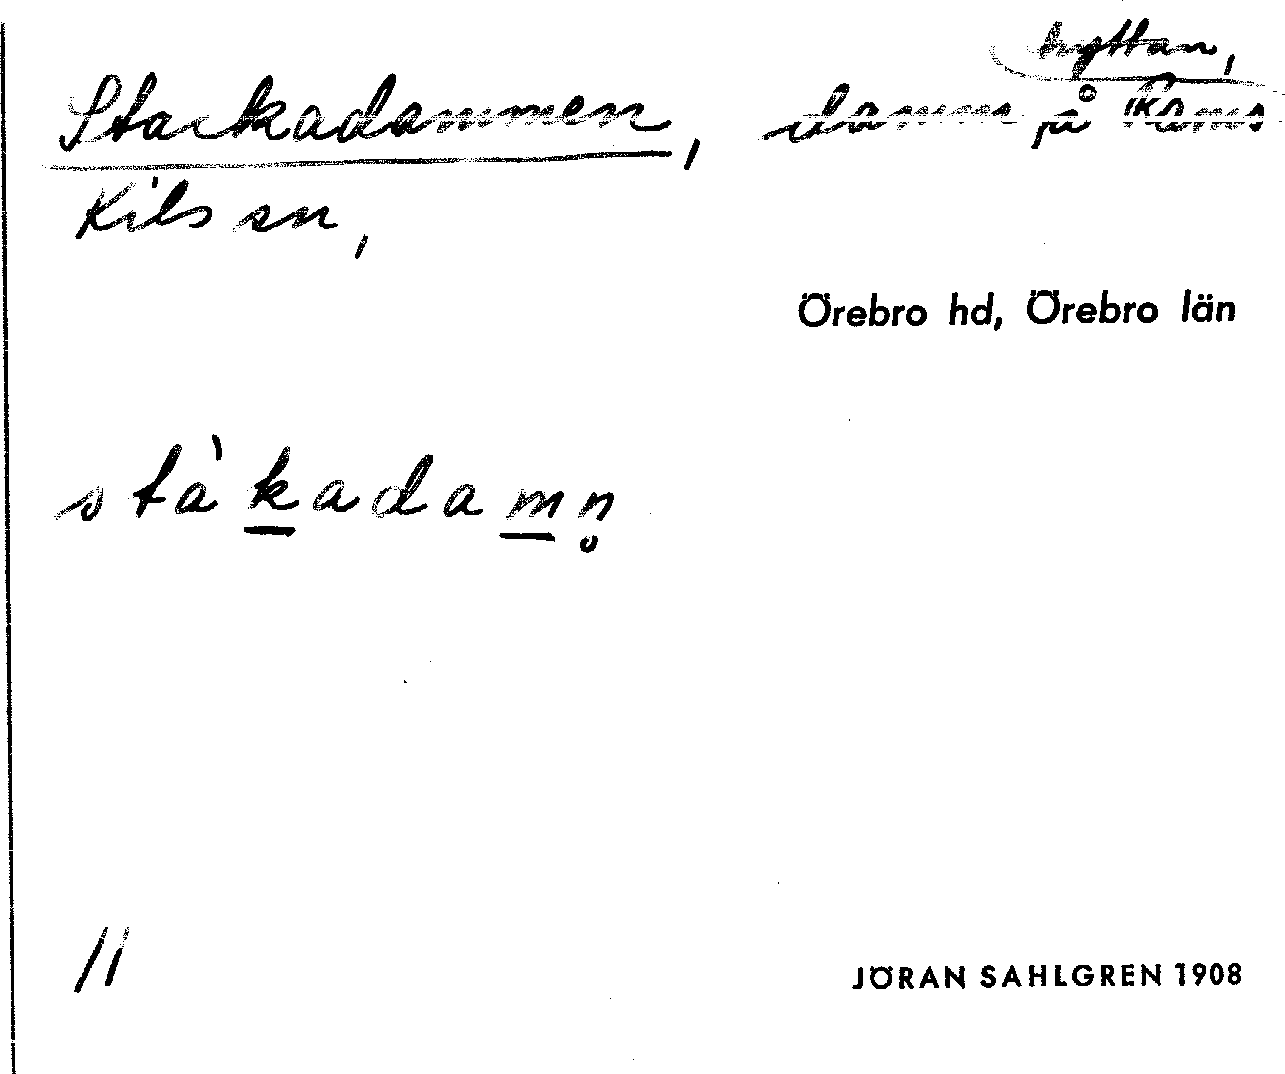 Starkadammen, damm på Rams
hyttan,
Kils sn,
Örebro hd, Örebro län
stàkadamn̥
11
JÖRAN SAHLGREN 1908